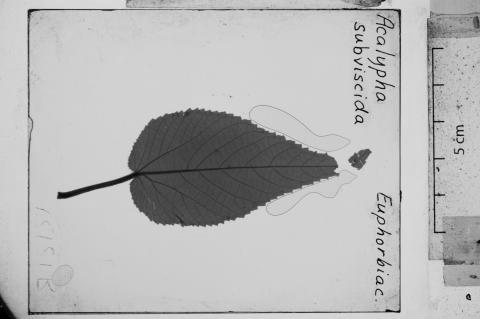 Acalypha
subviscida
Euphorbiac.
5 cm